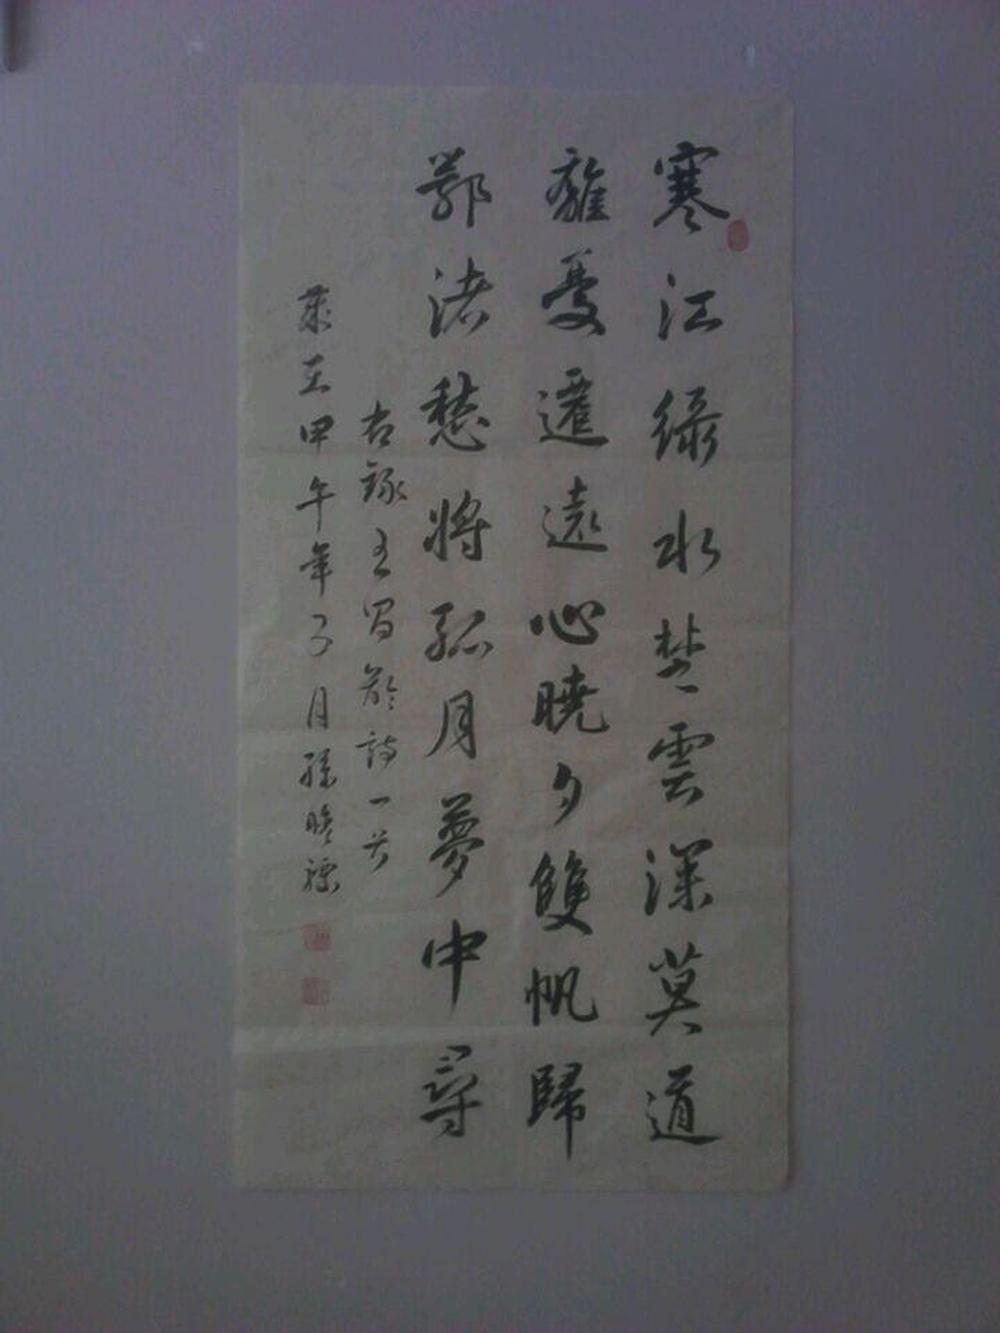 寒江綠水楚雲深莫道
離憂遷遠心曉夕雙帆歸
鄂渚愁將孤月夢中尋
右錄王昌齡詩一首
歲在甲午年 月孫